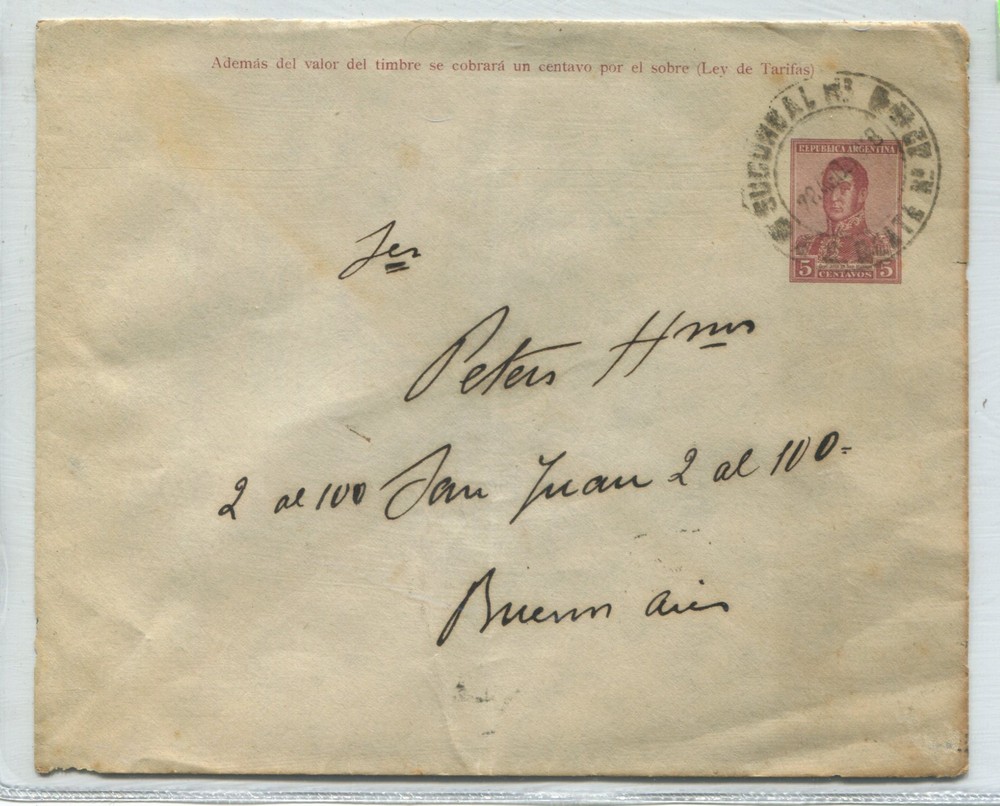 Además del valor del timbre se cobrará un centavo por el sobre (Ley de Tarifas)
SUCURSAL Nº
REPUBLICA ARGENTINA
5 CENTAVOS 5
Ser
Peters Hnos
2 al 100 San Juan 2 al 100=
Buenos Aires